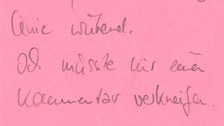 wütend.
Ich müsste mir einen
Kommentar verkneifen.